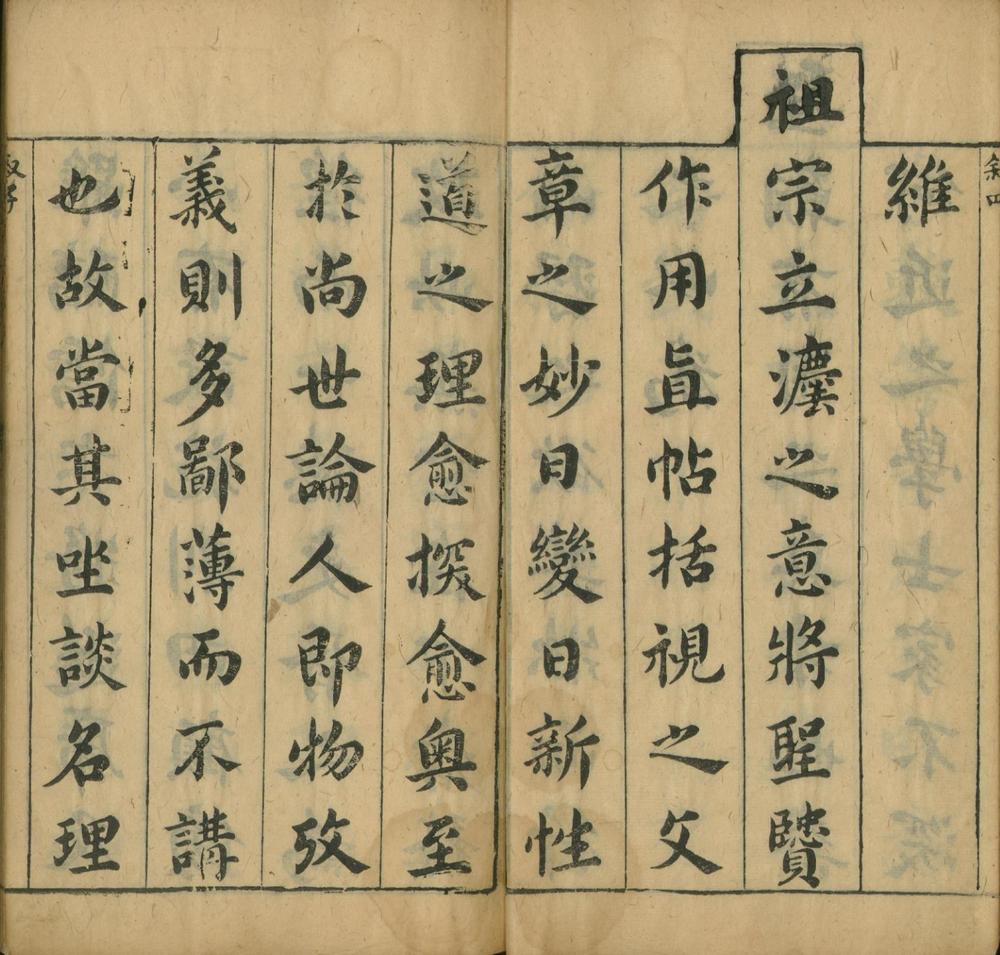 維
祖宗立灋之意將聖賢
作用直帖括視之文
章之妙日變日新性
道之理愈探愈奧至
於尚世論人即物攷
義則多鄙薄而不講
也故當其坐談名理